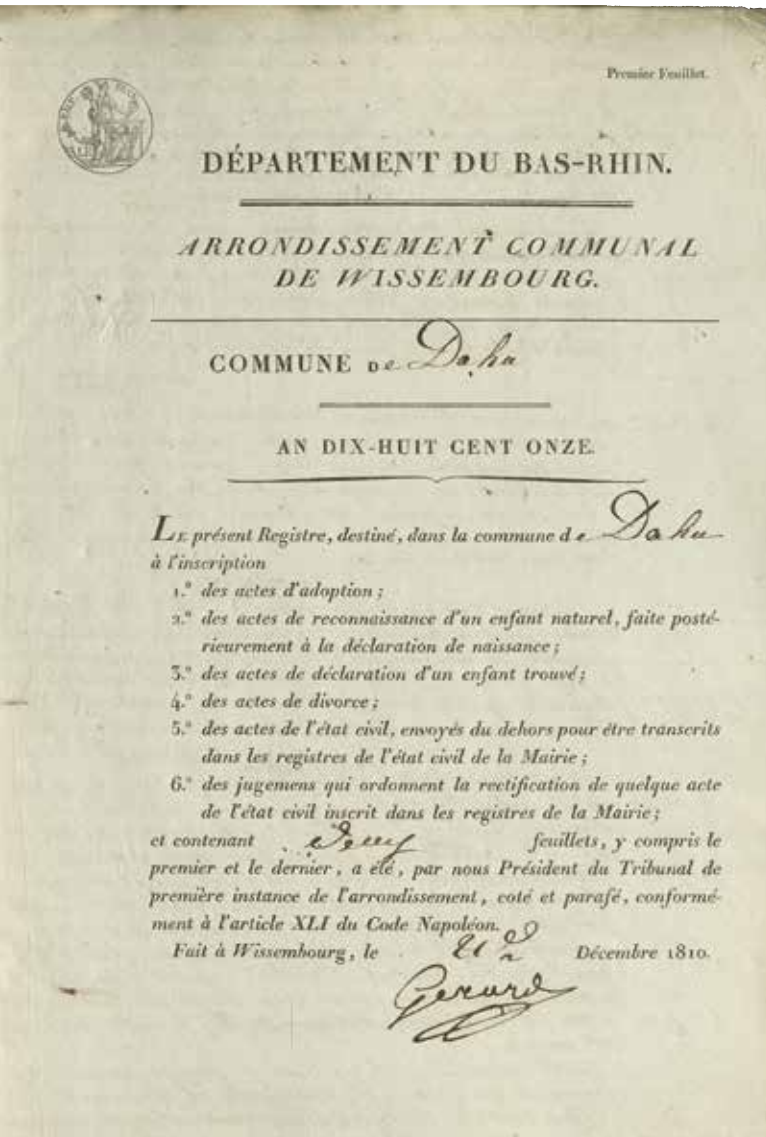 Premier Feuillet.
DÉPARTEMENT DU BAS-RHIN.
ARRONDISSEMENT COMMUNAL
DE WISSEMBOURG.
COMMUNE De Dahn
AN DIX-HUIT CENT ONZE.
LE présent Registre, destiné, dans la commune de Dahn
à l'inscription
1.º des actes d'adoption ;
2.º des actes de reconnaissance d'un enfant naturel, faite posté-
rieurement à la déclaration de naissance ;
3.º des actes de déclaration d'un enfant trouvé ;
4.º des actes de divorce ;
5.º des actes de l'état civil, envoyés du dehors pour être transcrits
dans les registres de l'état civil de la Mairie ;
6.º des jugemens qui ordonnent la rectification de quelque acte
de l'état civil inscrit dans les registres de la Mairie ;
et contenant deux feuillets, y compris le
premier et le dernier, a été, par nous Président du Tribunal de
première instance de l'arrondissement, coté et parafé, conformé-
ment à l'article XLI du Code Napoléon.
Fait à Wissembourg, le Décembre 1810.
Gerard